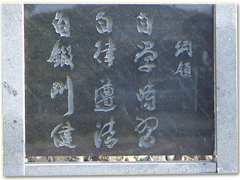 綱領
自学時習
自律遵法
自鍛叫健